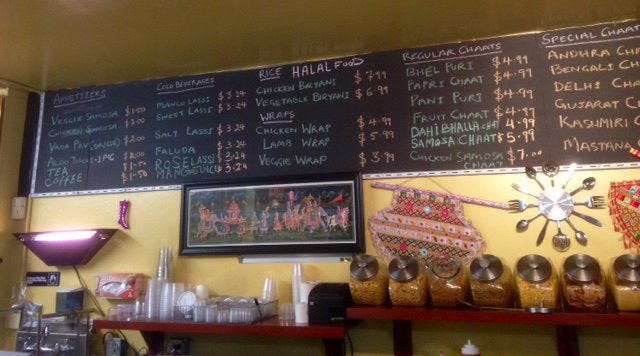 APPETIZERS
VEGGIE SAMOSA $1.50
CHICKEN SAMOSA $2.00
VADA PAV $2.00
ALOO TIKKI-1PC $2.00
TEA $1.50
COFFEE $1.50
COLD BEVERAGES
MANGO LASSI $3.24
SWEET LASSI $3.24
SALT LASSI $3.24
FALUDA $3.24
ROSE LASSI $3.24
MANGO JUICE $3.24
RICE HALAL FOOD
CHICKEN BIRYANI $7.99
VEGETABLE BIRYANI $6.99
WRAPS
CHICKEN WRAP $4.99
LAMB WRAP $5.99
VEGGIE WRAP $3.99
REGULAR CHAATS
BHEL PURI $4.99
PAPRI CHAAT $4.99
PANI PURI $4.99
FRUIT CHAAT $4.99
DAHI BHALLA CHAAT $4.99
SAMOSA CHAAT $5.99
CHICKEN SAMOSA CHAAT $7.00
SPECIAL CHAAT
ANDHRA CHA
BENGALI CH
DELHI CHA
GUJARAT C
KASHMIRI C
MASTANA